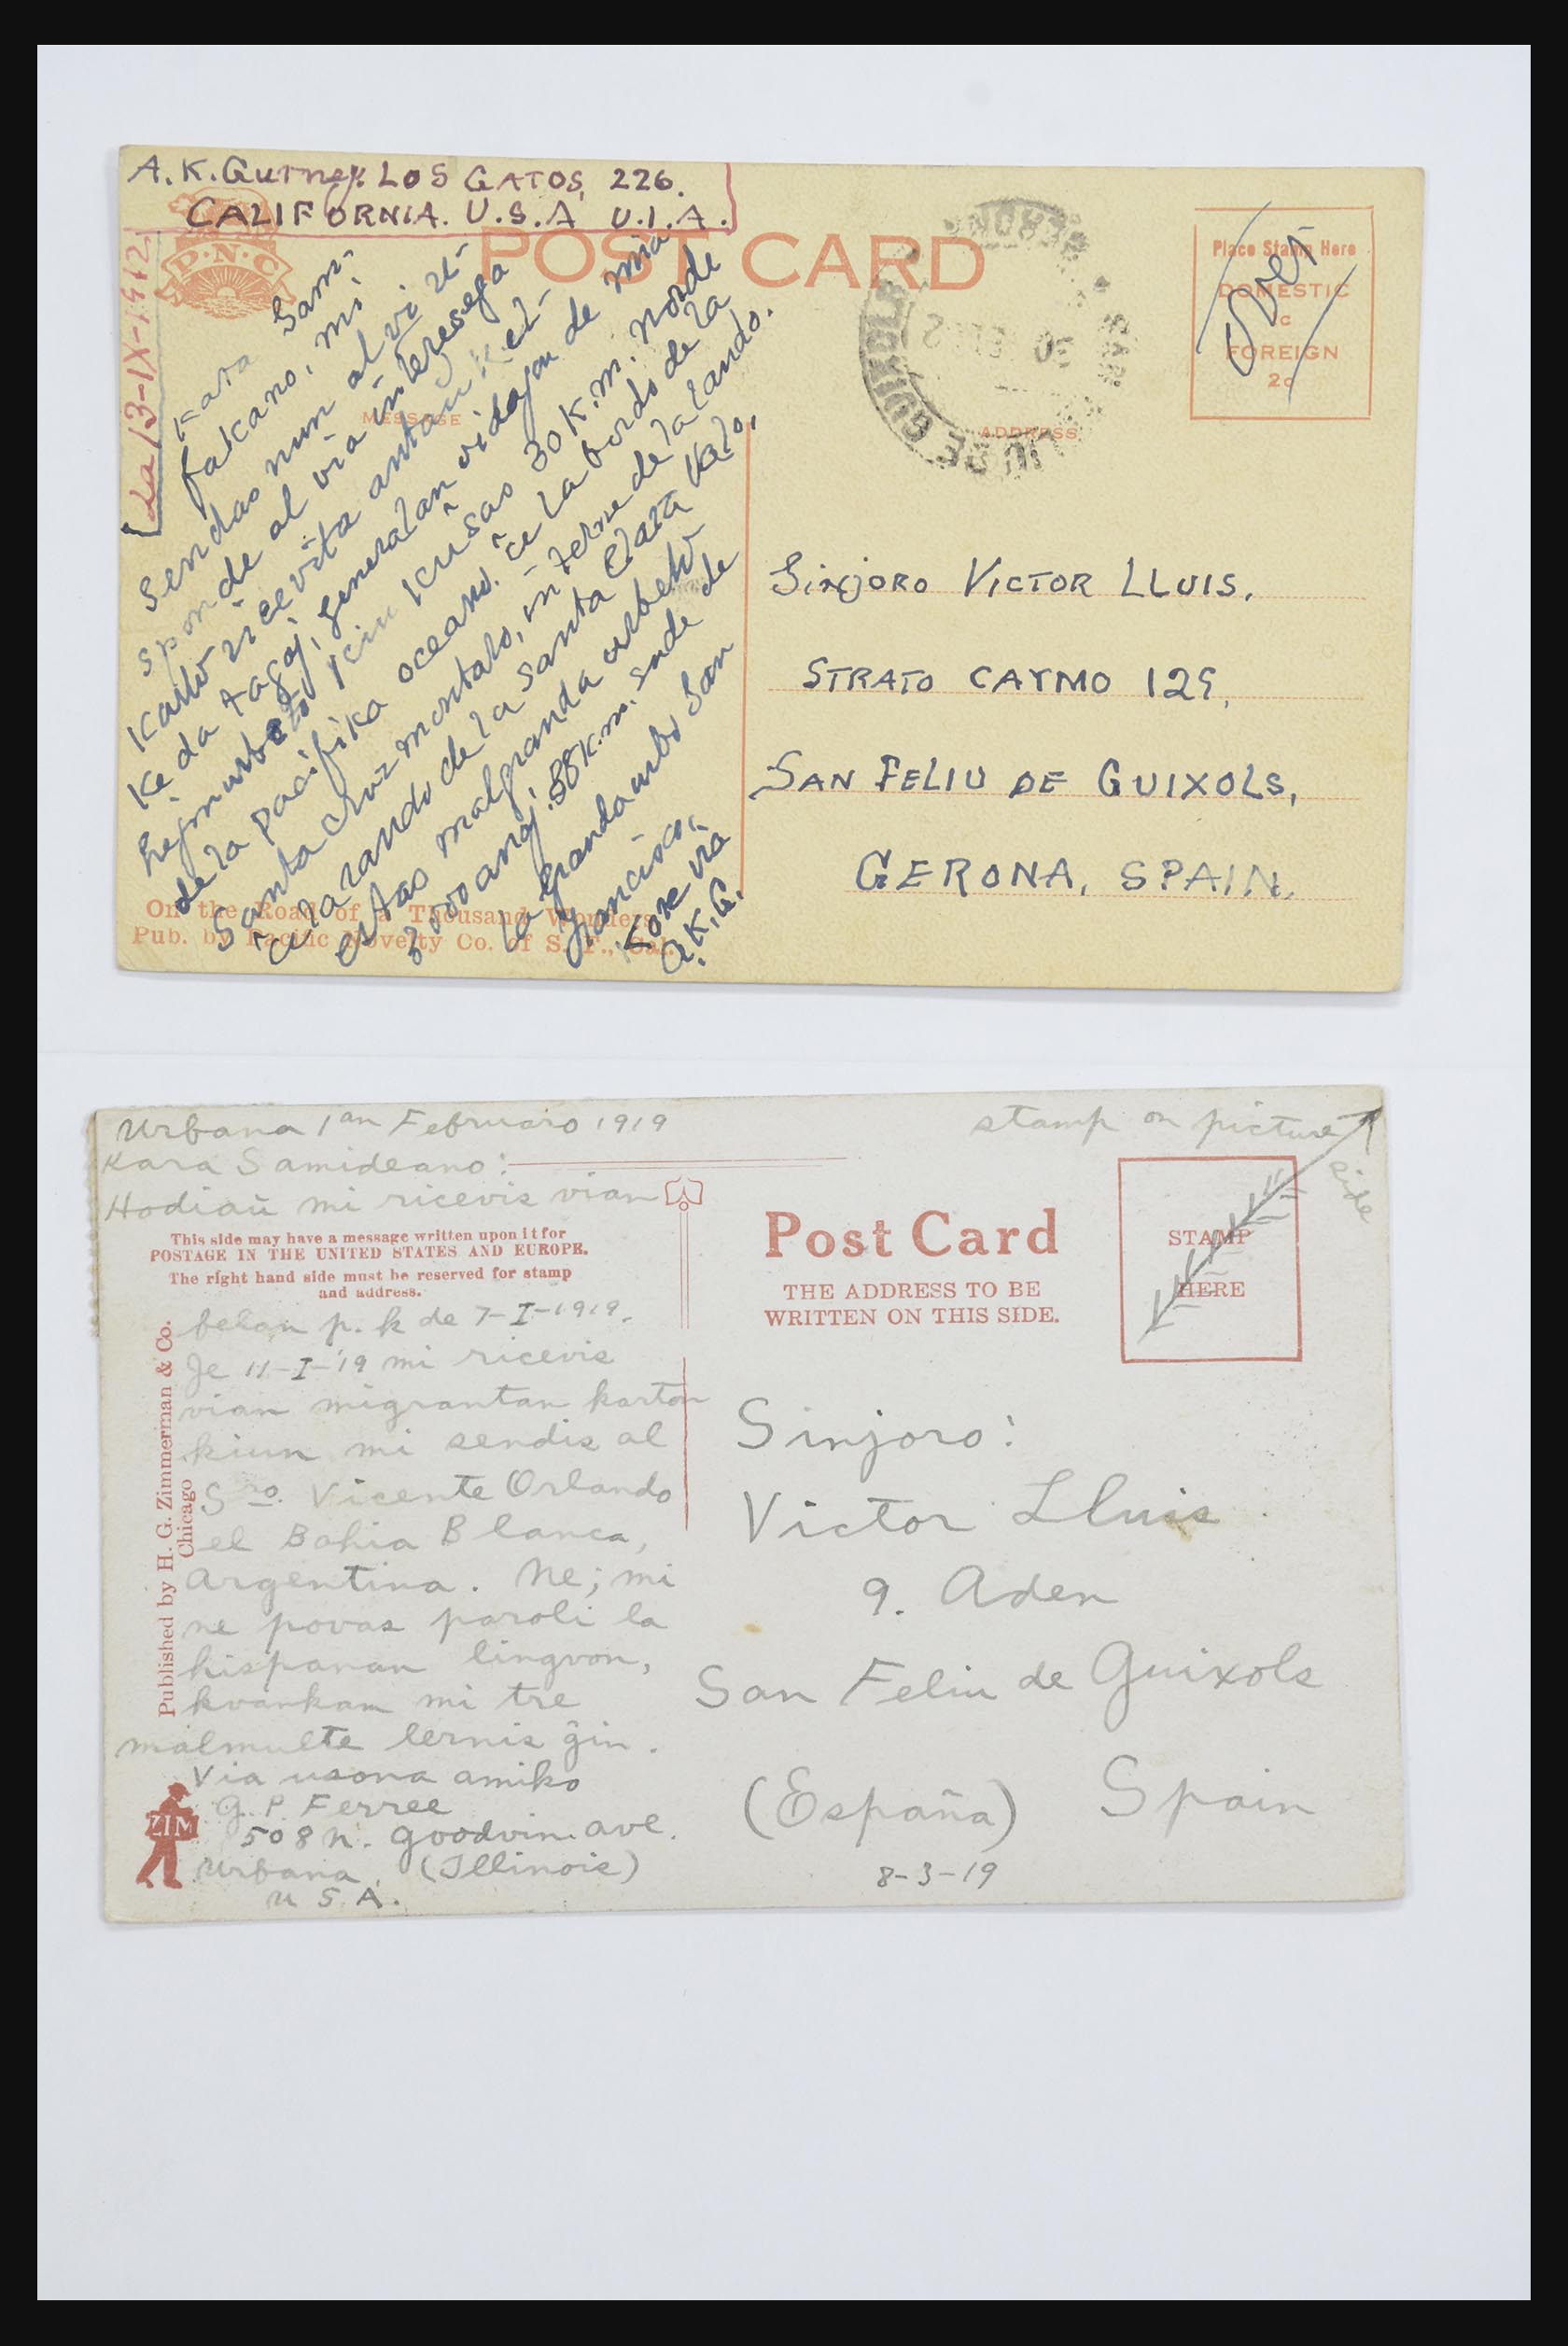 A. K. Gurney. LOS GATOS, 226.
CALIFORNIA. U.S.A U.I.A.
La 13-IX-1912
P·N·C
POST CARD
MESSAGE
ADDRESS
Place Stamp Here
DOMESTIC
c
FOREIGN
2c
Over
Kara Sam-
falcano, mi
sendas nun al vi re-
sponde al via interesega
karto ricevita antaŭ kel-
ke da tagoj, ĝeneralan vidajon de mia
hejmurbeto kiu kuŝas 30 K.m. norde
de la pacifika oceano. ĉe la bordo de la
Santa Cruz montaro, interne de la lando.
ĉe la rando de la Santa Clara Valo,
estas malgranda urbeto
3000 anoj. 88 K.m. sude de
la granda urbo San
Francisco,
Kore via
A.K.G.
On the Road of a Thousand Wonders
Pub. by Pacific Novelty Co. of S. F., Cal.
Sinjoro VICTOR LLUIS.
STRATO CAYMO 129,
SAN FELIU DE GUIXOLS,
GERONA, SPAIN.
Urbana 1an Februaro 1919
Kara Samideano:
Hodiaŭ mi ricevis vian
This side may have a message written upon it for
POSTAGE IN THE UNITED STATES AND EUROPE.
The right hand side must be reserved for stamp
and address.
belan p. k de 7-I-1919.
Je 11-I-'19 mi ricevis
vian migrantan karton
kiun mi sendis al
Sro. Vicente Orlando
el Bahia Blanca,
Argentina. Ne; mi
ne povas paroli la
hispanan lingvon,
kvankam mi tre
malmulte lernis ĝin.
Via usona amiko
G. P. Ferree
508 N. Goodwin. ave.
Urbana, (Illinois)
U S. A.
Published by H. G. Zimmerman & Co.
Chicago
ZIM
stamp on picture
side
Post Card
THE ADDRESS TO BE
WRITTEN ON THIS SIDE.
STAMP
HERE
Sinjoro:
Victor Lluis
9. Aden
San Feliu de Guixols
(España) Spain
8-3-19